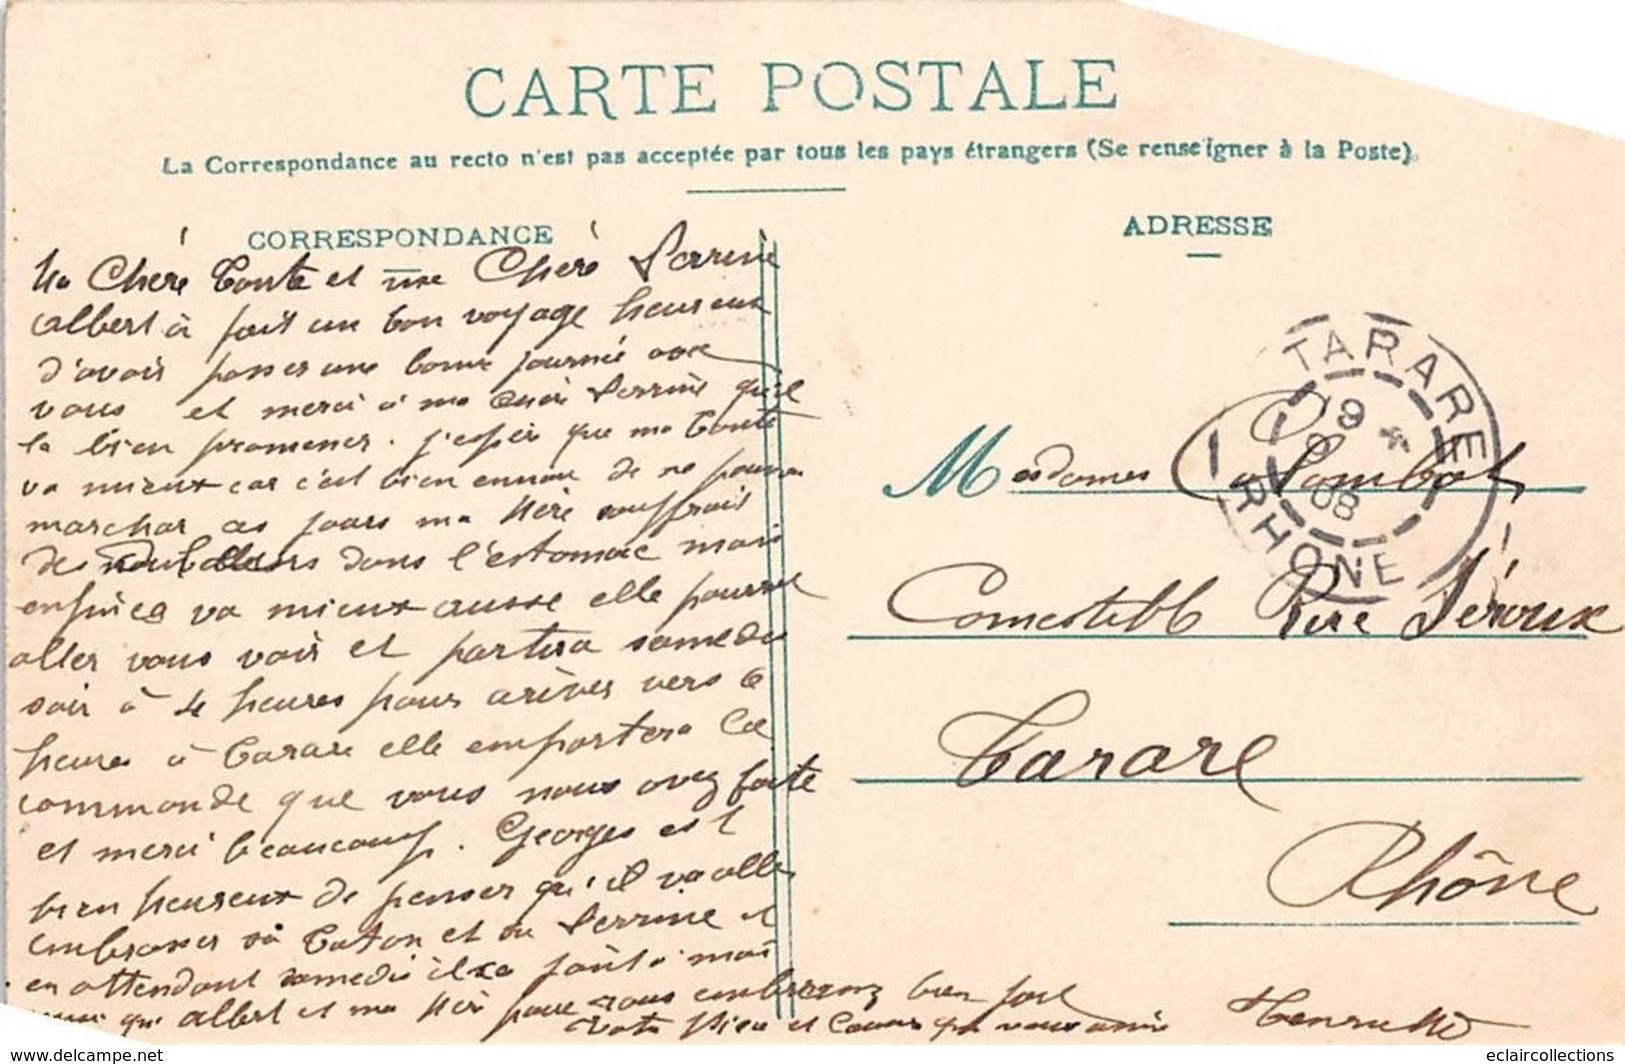 CARTE POSTALE
La Correspondance au recto n'est pas acceptée par tous les pays étrangers (Se renseigner à la Poste).
CORRESPONDANCE
Ma Chère Tante et ma Chère Perrine
albert à fait un bon voyage heureux
d'avoir passer une bonne journée avec
vous et merci à ma Chère Perrine qu'il
la bien promener. j'espér que ma Tante
va mieux car c'est bien ennui de ne pouvoir
marcher ces jours ma Mère souffrait
de douleurs dans l'estomac mais
enfin ça va mieux ausse elle pourra
aller vous voir et partira samedi
soir à 4 heures pour arèver vers 6
heures à Tarare elle emportera la
commande que vous nous avez faite
et merci beaucoup. Georges est
bien heureux de penser qu'il va aller
embrasser sa Taton et sa Perrine et
en attendant samedi il se joint à moi
qu' albert et ma Mère pour vous embrasser bien fort
Votre Nièce et Cousine qui vous aime Henriette
ADRESSE
Mesdames Colombat
Comestibl Rue Séroux
Tarare
Rhône
TARARE
19
9
08
RHONE
eclaircollections